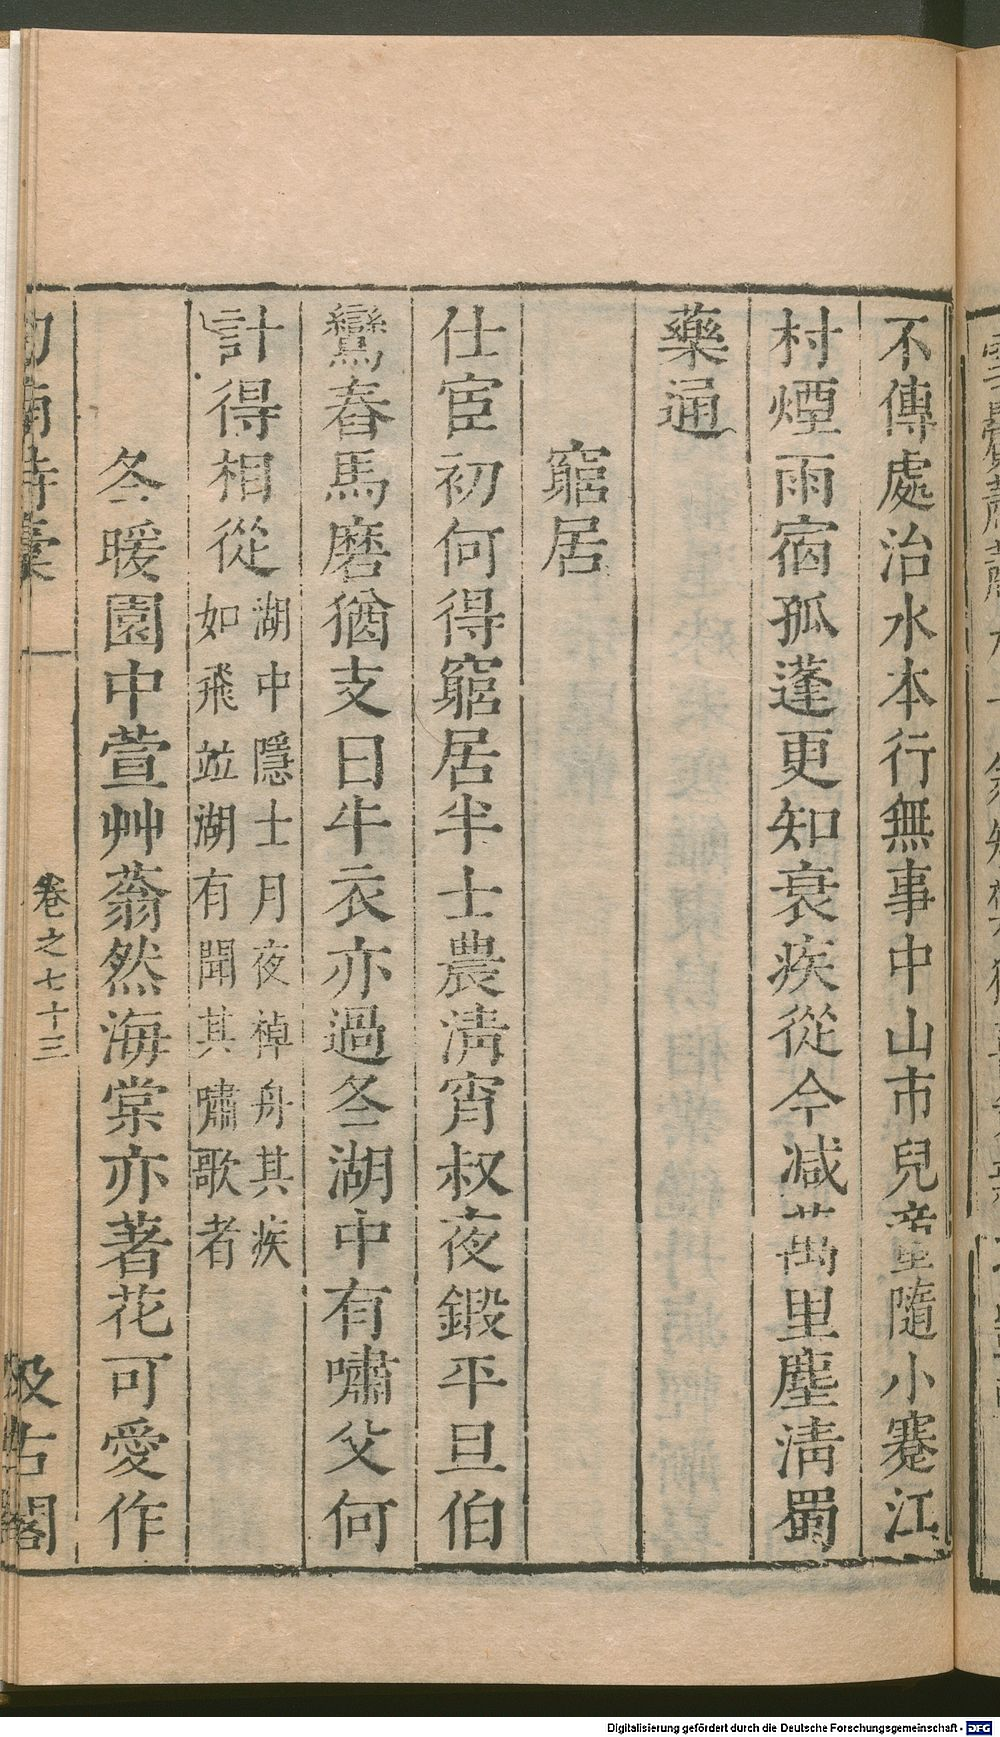 不傳處治水本行無事中山市兒童隨小蹇江
村煙雨宿孤蓬更知衰疾從今减萬里塵淸蜀
藥通
窮居
仕宦初何得窮居半士農淸宵叔夜鍛平旦伯
鸞舂馬磨猶支日牛衣亦過冬湖中有嘯父何
計得相從湖中隱士月夜棹舟其疾
如飛竝湖有聞其嘯歌者
冬暖園中萱艸蓊然海棠亦著花可愛作
劍南詩稾
卷之七十三
汲古閣
Digitalisierung gefördert durch die Deutsche Forschungsgemeinschaft - DFG